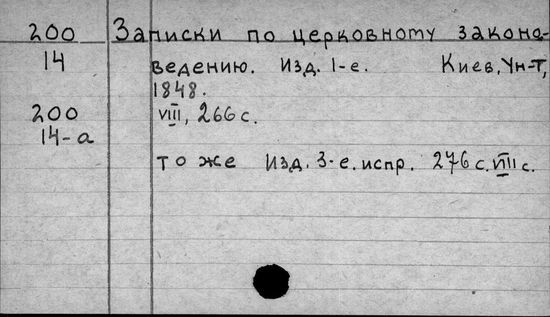 200 Записки по церковному законо-
14 ведению. Изд. 1-е. Киев, Ун-т,
1848.
200 VIII, 266 с.
14-а
то же Изд. 3-е. испр. 276 с. VIII с.